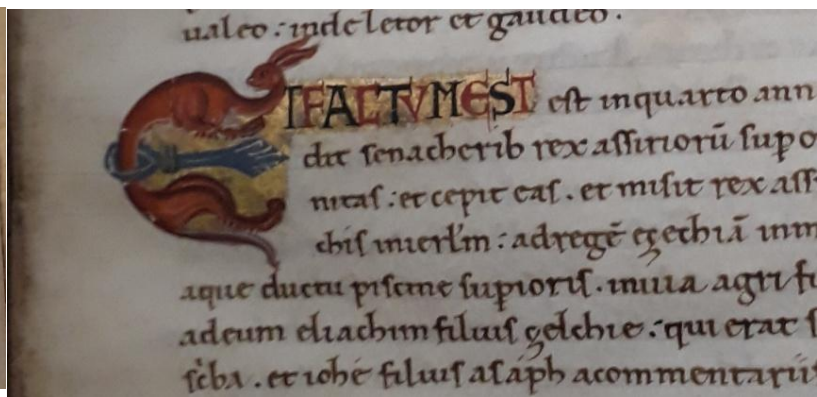 ualeo : inde letor et gaudeo .
ET FACTVM EST est inquarto ann
dit senacherib rex assirioru᷒ sup o
nitas : et cepit eas . et misit rex ass
chis inierl'm : ad regē ezechiā inm
aque ductu piscine supioris . inuia agri fu
adeum eliachim filius gelchie : qui erat s
sc̄ba . et iohe filius asaph acommentariis